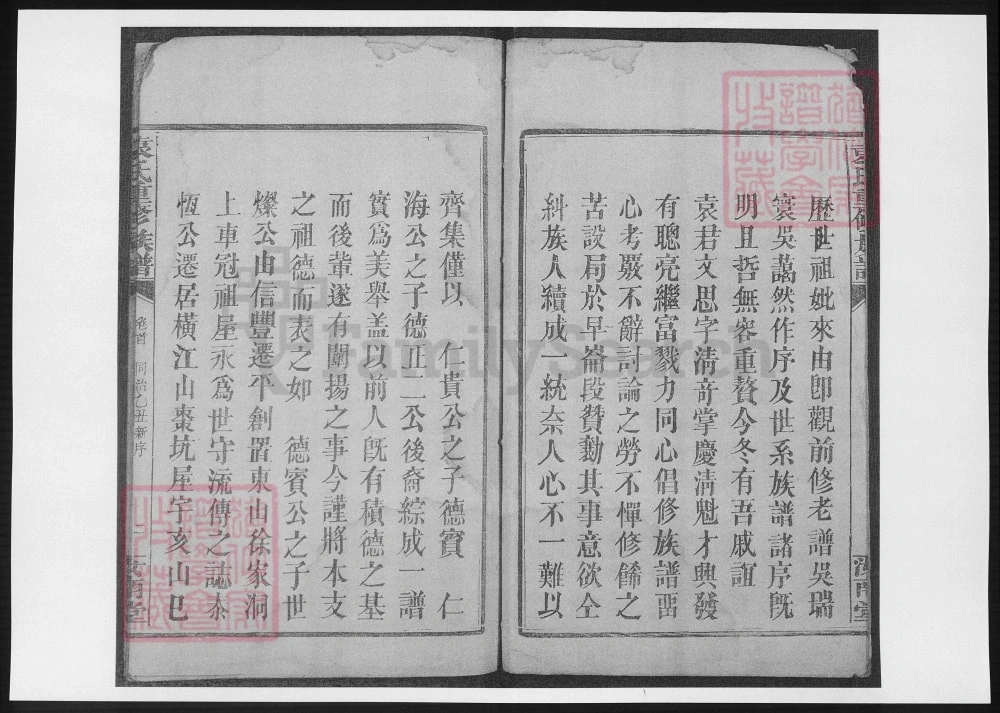 歷世祖妣來由卽觀前修老譜吳瑞
寰吳藹然作序及世系族譜諸序旣
明且哲無容重贅今冬有吾戚誼
袁君文思字淸奇掌慶淸魁才興發
有聰亮繼富戮力同心倡修族譜畱
心考嚴不辭討論之勞不憚修餙之
苦設局於早崙段贊勷其事意欲仝
糾族人續成一統奈人心不一難以
齊集僅以 仁貴公之子德賓 仁
海公之子德正二公後裔綜成一譜
實爲美舉盖以前人旣有積德之基
而後輩遂有闡揚之事今謹將本支
之祖德而表之如 德賓公之子世
燦公由信豐遷平創置東山徐家洞
上車冠祖屋永爲世守流傳之誌
恆公遷居橫江山棗坑屋宇亥山巳
袁氏重修族譜
卷首 同治乙丑新序
汝南堂
袁氏重修族譜
汝南堂
譜學會
收藏
FamilySearch